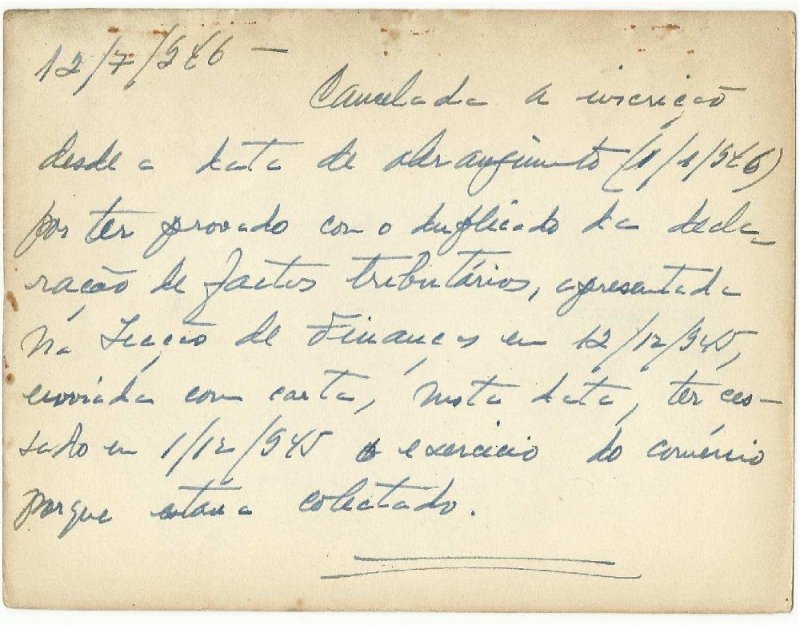 12/7/946 –
Cancelada a inscrição
desde a data de abrangimento (1/1/946)
por ter provado com o duplicado da decla-
ração de factos tributários, apresentada
na Secção de Finanças em 12/12/945,
enviada com carta, nesta data, ter ces-
sado em 1/12/945 o exercício do comércio
porque estava colectado.